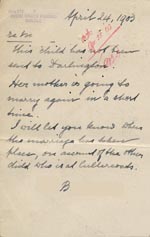 April 24, 1903
This child has not been
sent to Darlington
Her mother is going to
marry again in a short
time.
I will let you know when
the marriage has taken
place, on account of the other
child who is at Cullercoats.
B